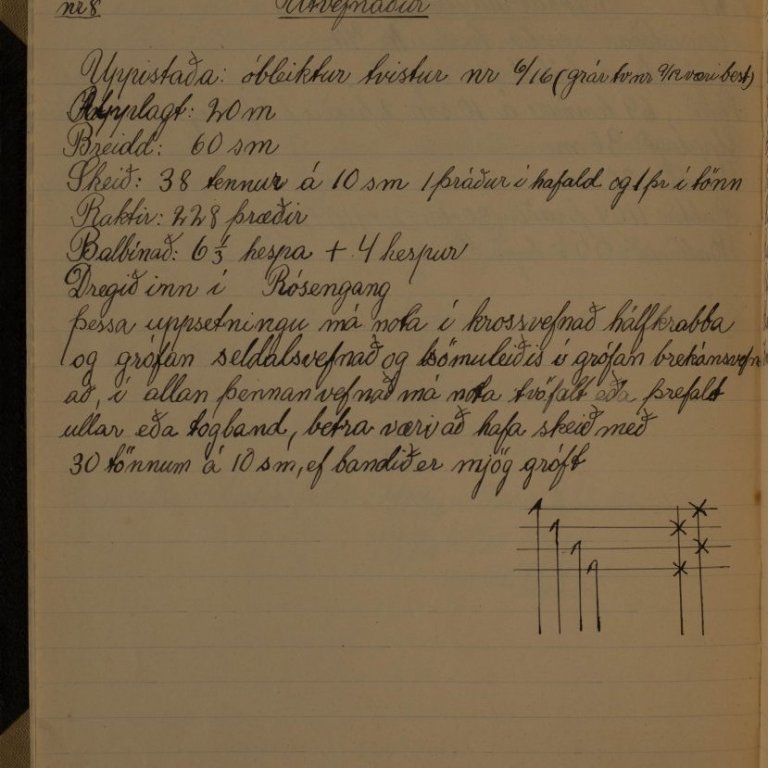 nr 8 Útvefnaður
Uppistaða: óbleiktur tvistur nr 6/16 (grár tv nr 9/12 væri best)
Upplagt: 20 m
Breidd: 60 sm
Skeið: 38 tennur á 10 sm 1 þráður í hafald og 1 þr í tönn
Raktir: 228 þræðir
Balbínað: 6 1/3 hespa + 4 hespur
Dregið inn í Rósengang
þessa uppsetningu má nota í krossvefnað hálfkrabba
og grófan seldalsvefnað og sömuleiðis í grófan brekánsvefn
að, í allan þennan vefnað má nota tvöfalt eða þrefalt
ullar eða togband, betra væri að hafa skeið með
30 tönnum á 10 sm, ef bandið er mjög gróft